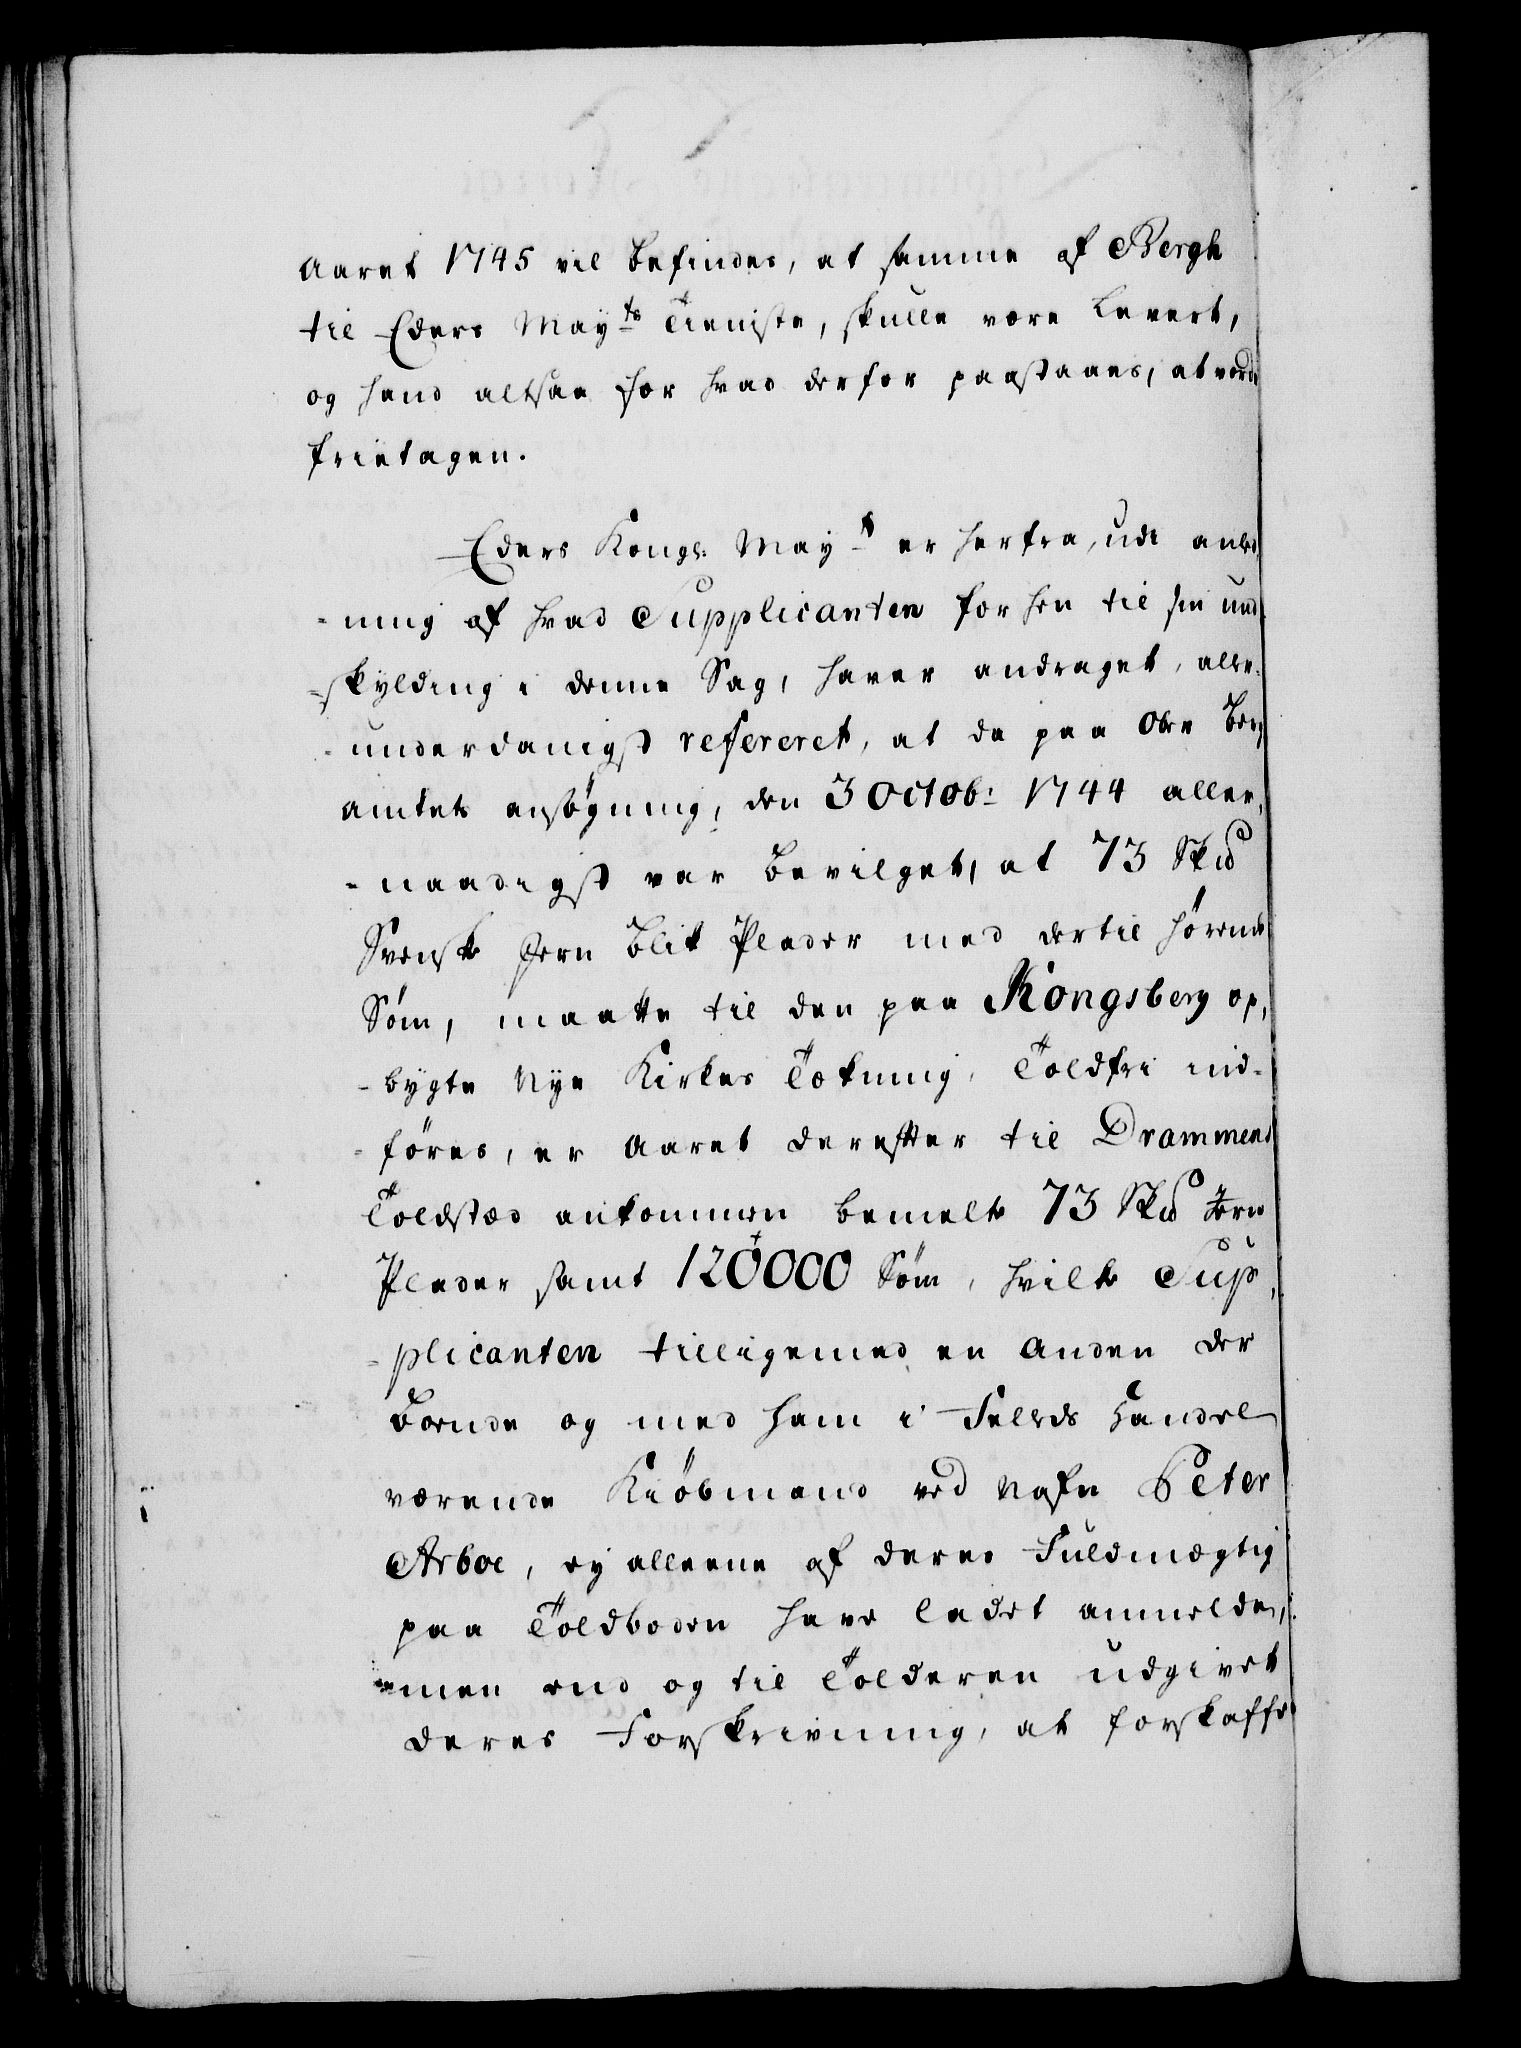 Aaret 1745 vil befindes, at samme af Bergh
til Eders May:ts Tieniste, skulle være leveret,
og hand altsaa for hvad derfor paastaaes, at vorde
frietagen.
Eders Kongl: May:t er herfra, udi anled
-ning af hvad Supplicanten forhen til sin und
-skylding i denne Sag, haver andraget, aller-
-underdanigst refereret, at da paa Ober Berg
amtets ansøgning, den 3 Octob: 1744 aller,
-naadigst var bevilget, at 73 Skud
Svensk Jern blik Plader med dertil hørende
Søm, maatte til den paa Kongsberg op,
-bygte Nye Kirkes Tækning, Toldfri ind-
-føres, er Aaret derefter til Drammens
Toldsted ankommen bemelte 73 Skud Jern
Plader samt 120000 Søm, hvilke Sup,
-plicanten tilligemed en anden der
boende og med ham i Fellets Handel
værende Kiøbmand ved Nafn Peter
Arboe, ey alleene af deres Fuldmægtig
paa Toldboden have ladet anmelde,
men end og til Tolderen udgivet
deres Forskrivning, at forskaffe